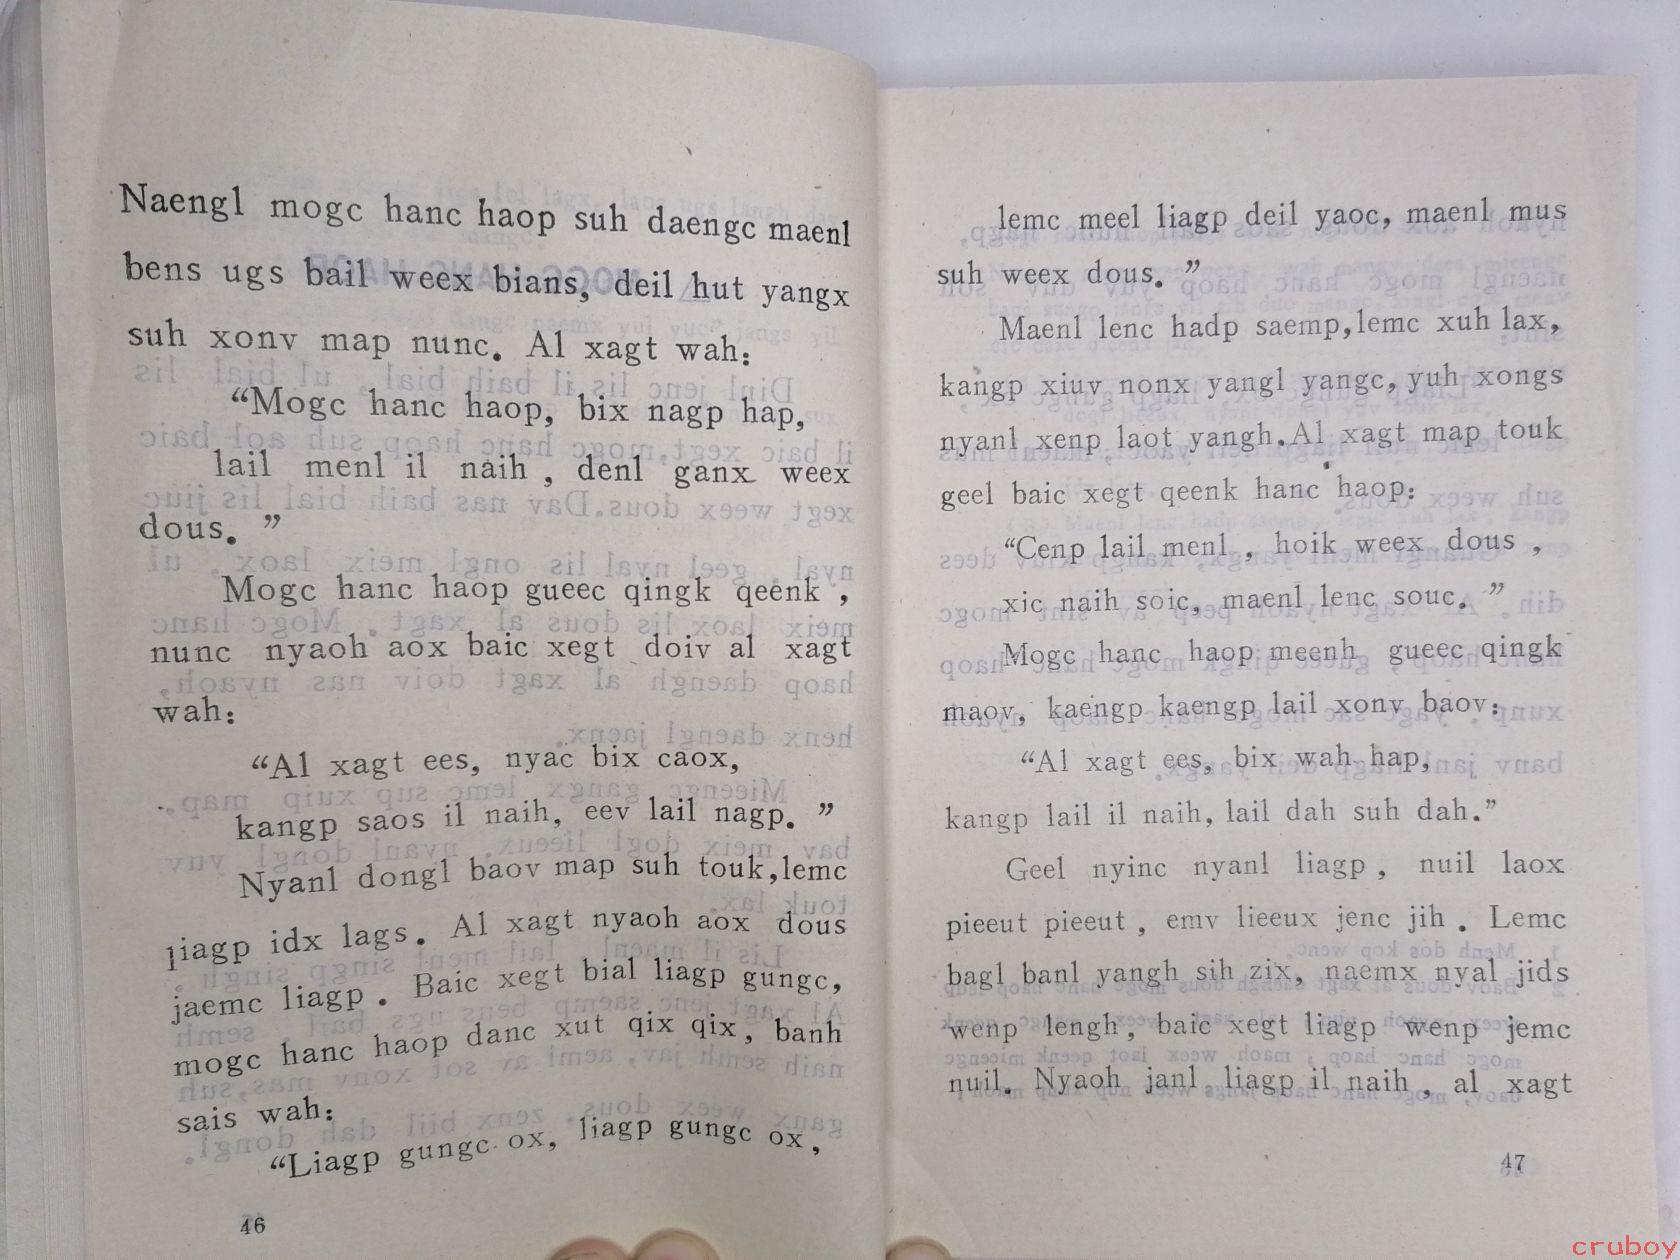 Naengl mogc hanc haop suh daengc maenl
bens ugs bail weex bians, deil hut yangx
suh xonv map nunc. Al xagt wah:
“Mogc hanc haop, bix nagp hap,
lail menl il naih , denl ganx weex
dous. ”
Mogc hanc haop gueec qingk qeenk ,
nunc nyaoh aox baic xegt doiv al xagt
wah:
“Al xagt ees, nyac bix caox,
kangp saos il naih, eev lail nagp. ”
Nyanl dongl baov map suh touk,lemc
liagp idx lags. Al xagt nyaoh aox dous
jaemc liagp . Baic xegt bial liagp gungc,
mogc hanc haop danc xut qix qix, banh
sais wah:
“Liagp gungc ox, liagp gungc ox ,
46
lemc meel liagp deil yaoc, maenl mus
suh weex dous. ”
Maenl lenc hadp saemp,lemc xuh lax,
kangp xiuv nonx yangl yangc, yuh xongs
nyanl xenp laot yangh.Al xagt map touk
geel baic xegt qeenk hanc haop:
“Cenp lail menl , hoik weex dous ,
xic naih soic, maenl lenc souc. ”
Mogc hanc haop meenh gueec qingk
maov, kaengp kaengp lail xonv baov:
“Al xagt ees, bix wah hap,
kangp lail il naih, lail dah suh dah.”
Geel nyinc nyanl liagp , nuil laox
pieeut pieeut , emv lieeux jenc jih . Lemc
bagl banl yangh sih zix, naemx nyal jids
wenp lengh, baic xegt liagp wenp jemc
nuil. Nyaoh janl liagp il naih , al xagt
47
cruboy